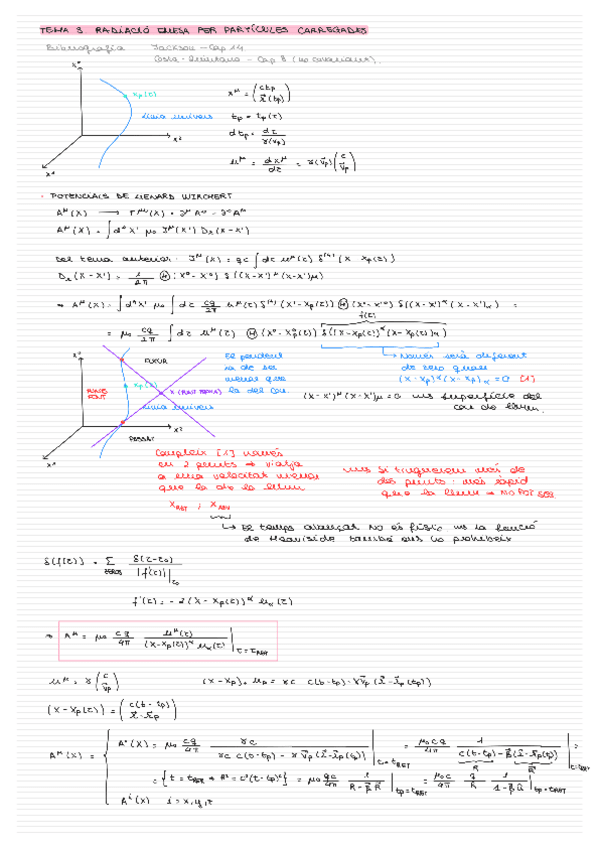 TEMA 3 RADIACIÓ EMESA PER PARTÍCULES CARREGADES
Bibliografia Jackson - Cap 14
Costa-Quintana - Cap 8 (no covariant).
x⁰
x_p(τ)
línia univers
x²
x¹
x^μ = (c t_p, x⃗(t_p))
t_p = t_p(τ)
dt_p = dτ / γ(v_p)
u^μ = dx^μ/dτ = γ(v_p) (c, v⃗_p)
· POTENCIALS DE LIENARD WIRCHERT
A^μ(x) → F^μν(x) = ∂^μ A^ν - ∂^ν A^μ
A^μ(x) = ∫d⁴x' μ₀ J^μ(x') D_R(x-x')
Del tema anterior: J^μ(x) = qc ∫dτ u^μ(τ) δ⁽⁴⁾(x - x_p(τ))
D_R(x-x') = 1/2π Ⓗ(x⁰-x'⁰) δ((x-x')^μ(x-x')_μ)
⇒ A^μ(x) = ∫d⁴x' μ₀ ∫dτ cq/2π u^μ(τ) δ⁽⁴⁾(x'-x_p(τ)) Ⓗ(x⁰-x'⁰) δ((x-x')^α(x-x')_α) =
f(τ)
= μ₀ cq/2π ∫dτ u^μ(τ) Ⓗ(x⁰-x⁰_p(τ)) δ((x-x_p(τ))^α(x-x_p(τ))_α)
x⁰
FUTUR
x_p(τ)
línia univers
PASSAT
x²
x¹
El pendent
ha de ser
menor que
la del con.
→ Només serà diferent
de zero quan
(x-x_p)^α(x-x_p)_α = 0 [1]
(x-x')^μ(x-x')_μ = 0 superfície del
con de llum.
Compleix [1] només
en 2 punts ⇒ viatja
a una velocitat menor
que la de la llum
x_RET ; x_ADV
si tinguessim més de
dos punts: més ràpid
que la llum ⇒ NO POT SER
↳ El temps avançat NO és físic la funció
de Heaviside també ens ho prohibeix
δ(f(τ)) = Σ_zeros δ(τ-τ₀) / |f'(τ)||_τ₀
f'(τ) = -2(x-x_p(τ))^α u_α(τ)
⇒ A^μ = μ₀ cq/4π u^μ(τ) / (x-x_p(τ))^α u_α(τ) |_τ=τ_RET
u^μ = γ (c, v⃗_p)
(x-x_p)·u_p = γc c(t-t_p) - γv⃗_p(x⃗-x⃗_p(t_p))
(x-x_p(τ)) = (c(t-t_p), x⃗-x⃗_p)
A^μ(x) = { A⁰(x) = μ₀ cq/4π γc / (γc c(t-t_p) - γv⃗_p(x⃗-x⃗_p(t_p))) |_t=t_RET = μ₀cq/4π 1 / (c(t-t_p) - β⃗(x⃗-x⃗_p(t_p))) |_t=t_RET =
R R⃗
= {t = t_RET ⇒ R² = c²(t-t_p)²} = μ₀ qc/4π 1/(R-β⃗R⃗) |_tp=t_RET = μ₀c/4π q/R 1/(1-β⃗n̂) |_tp=t_RET
A^i(x) i = x,y,z